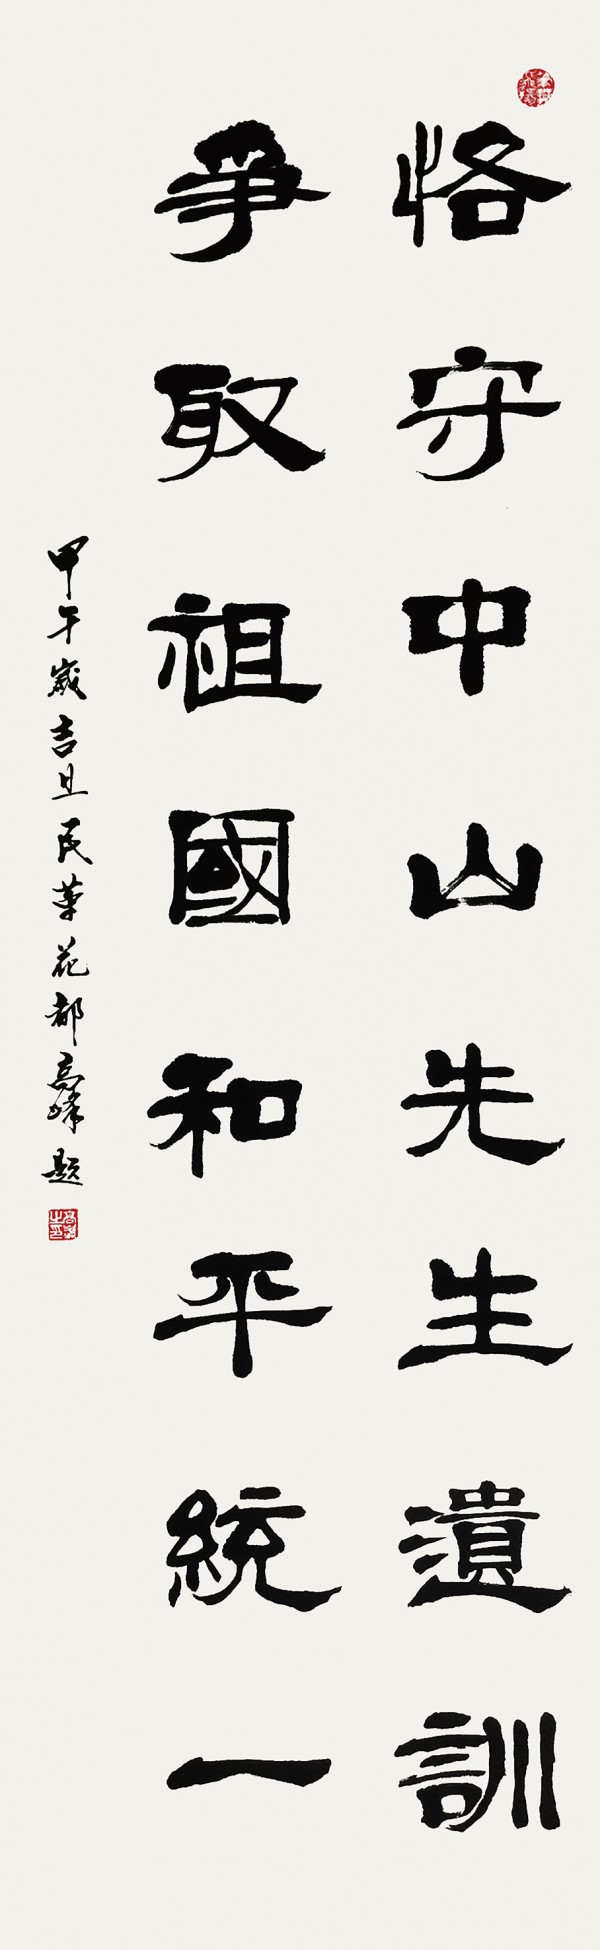 恪守中山先生遺訓
爭取祖國和平統一
甲午歲吉旦民革花都高峰題